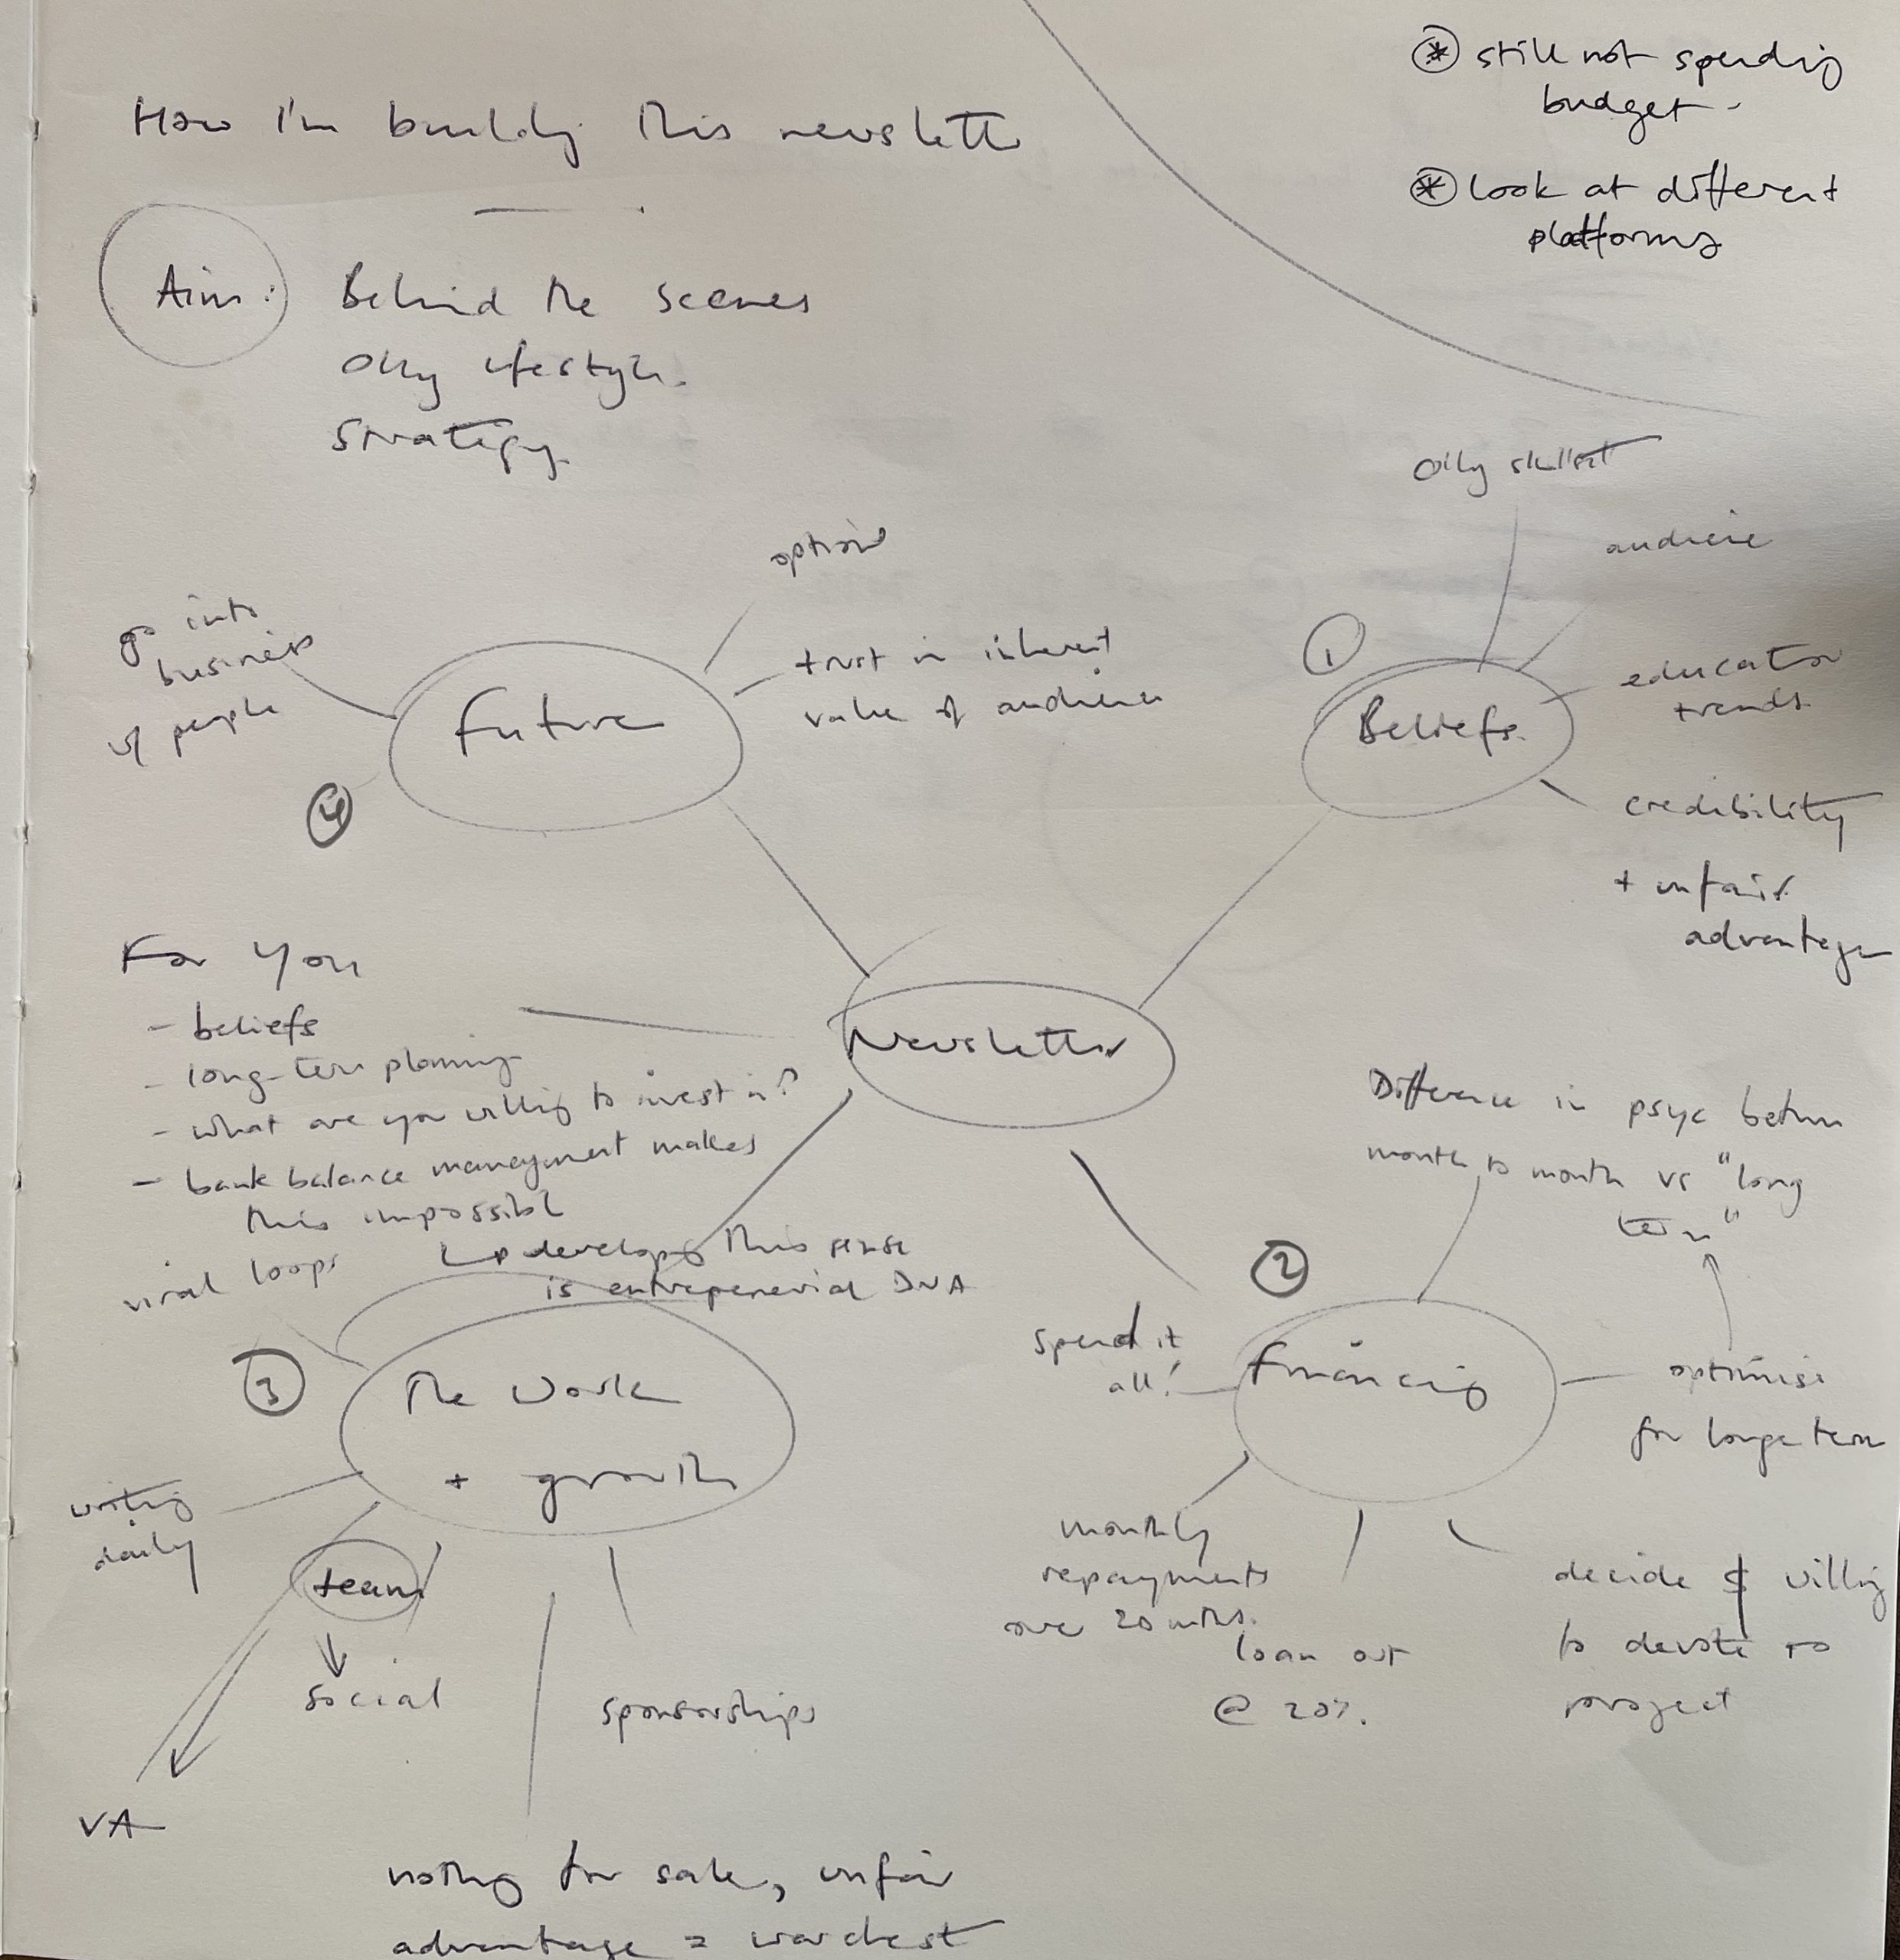 How I'm building this newsletter
⊛ still not spending
budget -
⊛ look at different
platforms
Aim: Behind the scenes
Olly lifestyle.
Strategy
Future
④
option
trust in inherent
value of audience
go into
business
of people
①
Beliefs.
Olly skillset
audience
education
trends
credibility
+ unfair
advantage
Newsletter
For You
- beliefs
- long-term planning
- what are you willing to invest in?
- bank balance management makes
this impossible
↳ develop this sense
is entrepenerial DNA
②
Financing
Difference in psyc between
month to month vs "long
term"
optimise
for longe term
spend it
all!
monthly
repayments
over 20 mths.
loan out
@ 20%.
decide $ willing
to devote to
project
③
The Work
+ growth
viral loops
writing
daily
team
social
VA
sponsorships
nothing for sale, unfair
advantage = warchest